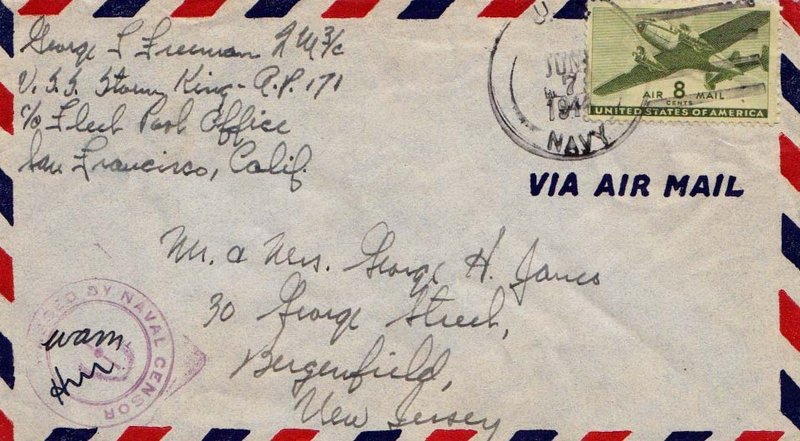 George L Freeman 2M 3/c
U.S.S. Storm King - A.P. 171
c/o Fleet Post Office
San Francisco, Calif.
U.
JUN
7
194
NAVY
AIR 8 MAIL
CENTS
UNITED STATES OF AMERICA
VIA AIR MAIL
Mr. & Mrs. George H. James
30 George Street,
Bergenfield,
New Jersey
PASSED BY NAVAL CENSOR